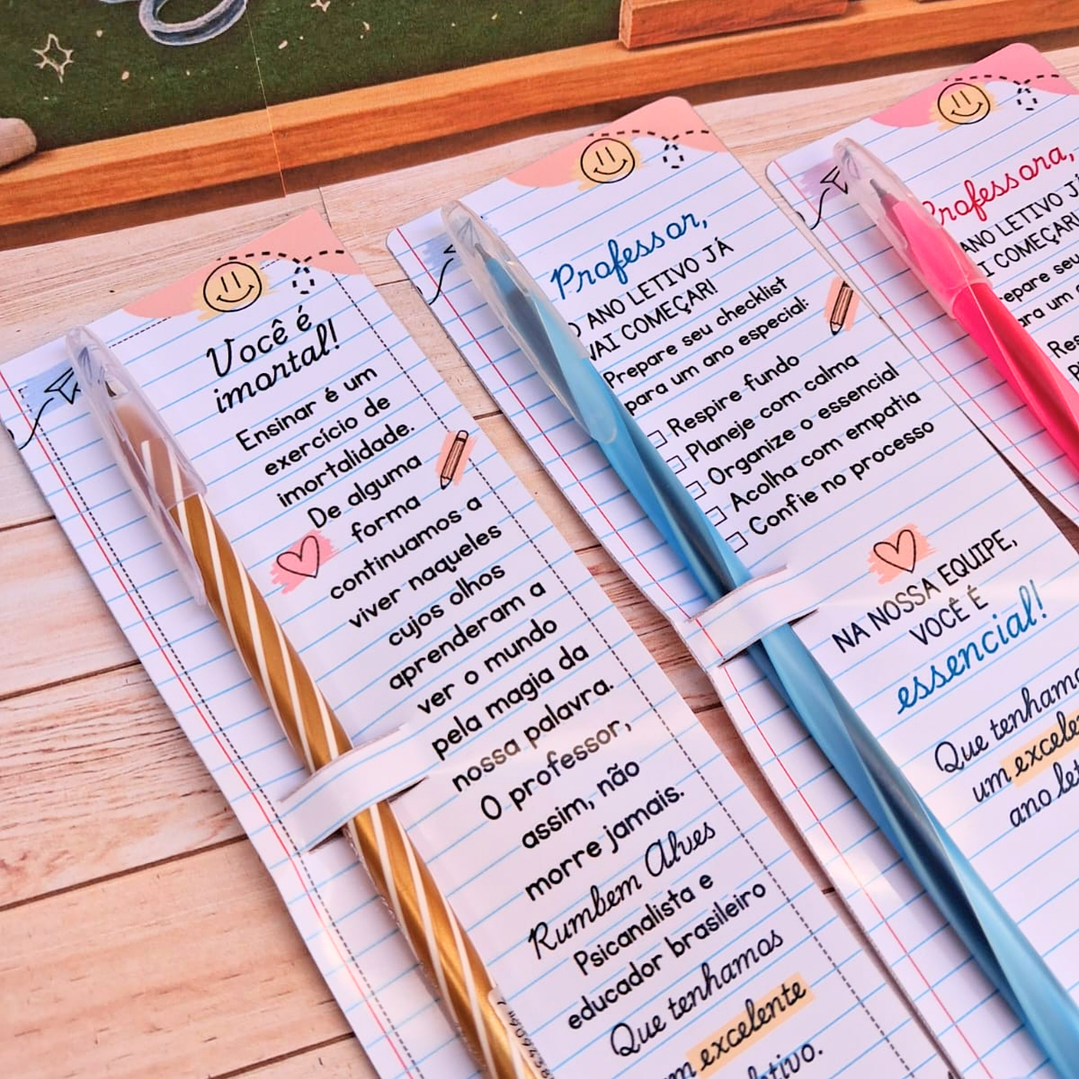 Você é
imortal!
Ensinar é um
exercício de
imortalidade.
De alguma
forma
continuamos a
viver naqueles
cujos olhos
aprenderam a
ver o mundo
pela magia da
nossa palavra.
O professor,
assim, não
morre jamais.
Rumbem Alves
Psicanalista e
educador brasileiro
Que tenhamos
excelente
Professor,
O ANO LETIVO JÁ
VAI COMEÇAR!
Prepare seu checklist
para um ano especial:
Respire fundo
Planeje com calma
Organize o essencial
Acolha com empatia
Confie no processo
NA NOSSA EQUIPE,
VOCÊ É
essencial!
Que tenhamos
um
ano
Professora,
ANO LETIVO
COMEÇAR!